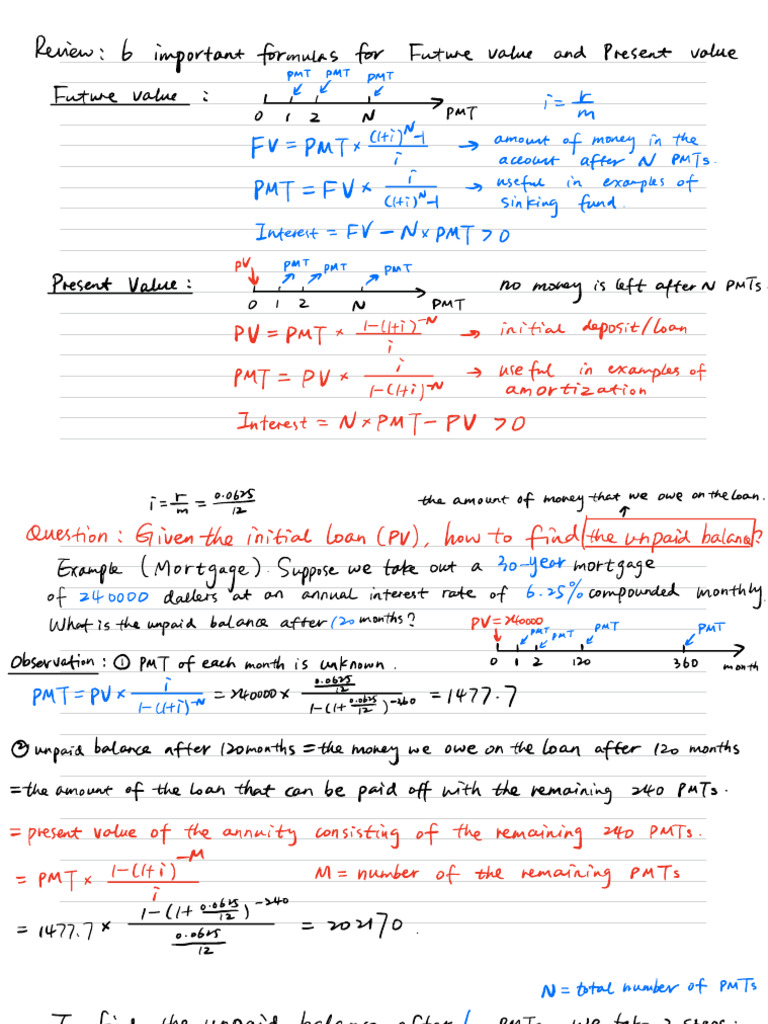 Review: 6 important formulas for Future value and Present value
PMT PMT PMT
Future value :
0 1 2 N PMT
i = r/m
FV = PMT × ((1+i)^N - 1)/i → amount of money in the account after N PMTs.
PMT = FV × i/((1+i)^N - 1) → useful in examples of sinking fund.
Interest = FV - N × PMT > 0
PV PMT PMT PMT
Present Value :
0 1 2 N PMT
no money is left after N PMTs.
PV = PMT × (1-(1+i)^-N)/i → initial deposit/loan
PMT = PV × i/(1-(1+i)^-N) → useful in examples of amortization
Interest = N × PMT - PV > 0
i = r/m = 0.0625/12
the amount of money that we owe on the loan.
Question : Given the initial loan (PV), how to find the unpaid balance?
Example (Mortgage). Suppose we take out a 30-year mortgage
of 240000 dallers at an annual interest rate of 6.25% compounded monthly.
What is the unpaid balance after 120 months?
PV = 240000 PMT PMT PMT PMT
0 1 2 120 360 month
Observation : ① PMT of each month is unknown.
PMT = PV × i/(1-(1+i)^-N) = 240000 × (0.0625/12)/(1-(1+0.0625/12)^-360) = 1477.7
② unpaid balance after 120 months = the money we owe on the loan after 120 months
= the amount of the loan that can be paid off with the remaining 240 PMTs.
= present value of the annuity consisting of the remaining 240 PMTs.
= PMT × (1-(1+i)^-M)/i M = number of the remaining PMTs
= 1477.7 × (1-(1+0.0625/12)^-240)/(0.0625/12) = 202170.
N = total number of PMTs